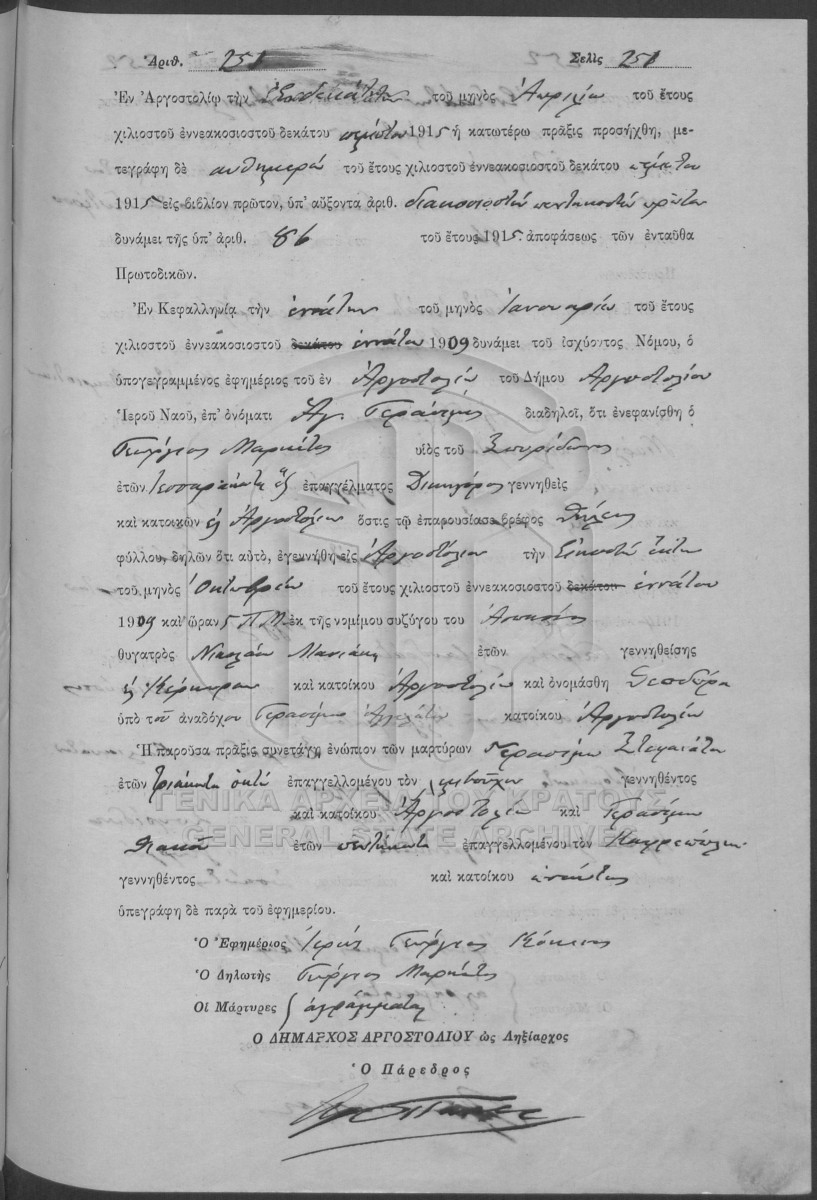 Ἀριθ. 251 Σελὶς 251
Ἐν Ἀργοστολίῳ τὴν τοῦ μηνὸς Ἀπριλίου τοῦ ἔτους
χιλιοστοῦ ἐννεακοσιοστοῦ δεκάτου πέμπτου 1915 ἡ κατωτέρω πρᾶξις προσήχθη, με-
τεγράφη δὲ αὐθημερὸν τοῦ ἔτους χιλιοστοῦ ἐννεακοσιοστοῦ δεκάτου πέμπτου
1915 εἰς βιβλίον πρῶτον, ὑπ' αὔξοντα ἀριθ. διακοσιοστὸν πεντηκοστὸν πρῶτον
δυνάμει τῆς ὑπ' ἀριθ. 86 τοῦ ἔτους 1915 ἀποφάσεως τῶν ἐνταῦθα
Πρωτοδικῶν.
Ἐν Κεφαλληνίᾳ τὴν ἐννάτην τοῦ μηνὸς Ἰανουαρίου τοῦ ἔτους
χιλιοστοῦ ἐννεακοσιοστοῦ δεκάτου ἐννάτου 1909 δυνάμει τοῦ ἰσχύοντος Νόμου, ὁ
ὑπογεγραμμένος ἐφημέριος τοῦ ἐν Ἀργοστολίῳ τοῦ Δήμου Ἀργοστολίου
Ἱεροῦ Ναοῦ, ἐπ' ὀνόματι Ἁγ. Γεράσιμος διαδηλοῖ, ὅτι ἐνεφανίσθη ὁ
Γεώργιος Μαρκέτος υἱὸς τοῦ Σπυρίδωνος
ἐτῶν τεσσαράκοντα ἓξ ἐπαγγέλματος Δικηγόρος γεννηθεὶς
καὶ κατοικῶν ἐν Ἀργοστολίῳ ὅστις τῷ ἐπαρουσίασε βρέφος θήλεος
φύλλου, δηλῶν ὅτι αὐτὸ, ἐγεννήθη εἰς Ἀργοστόλιον τὴν Εἰκοστὴν ἕκτην
τοῦ μηνὸς Ὀκτωβρίου τοῦ ἔτους χιλιοστοῦ ἐννεακοσιοστοῦ δεκάτου ἐννάτου
1909 καὶ ὥραν 5 Π.Μ. ἐκ τῆς νομίμου συζύγου του Ἀσπασίας
θυγατρὸς Νικολάου ἐτῶν γεννηθείσης
ἐν Κέρκυρᾳ καὶ κατοίκου Ἀργοστολίου καὶ ὀνομάσθη Θεοδώρα
ὑπὸ τοῦ ἀναδόχου Γερασίμου κατοίκου Ἀργοστολίου
Ἡ παροῦσα πρᾶξις συνετάγη ἐνώπιον τῶν μαρτύρων Γερασίμου Στεφανάτου
ἐτῶν τριάκοντα ὀκτὼ ἐπαγγελλομένου τὸν γεννηθέντος
καὶ κατοίκου Ἀργοστολίου καὶ Γερασίμου
ἐτῶν πεντήκοντα ἐπαγγελλομένου τὸν
γεννηθέντος καὶ κατοίκου ἐνταῦθα
ὑπεγράφη δὲ παρὰ τοῦ ἐφημερίου.
Ὁ Ἐφημέριος Ἱερεὺς Γεώργιος
Ὁ Δηλωτὴς Γεώργιος Μαρκέτος
Οἱ Μάρτυρες ἀγράμματοι
Ο ΔΗΜΑΡΧΟΣ ΑΡΓΟΣΤΟΛΙΟΥ ὡς Ληξίαρχος
Ὁ Πάρεδρος
ΓΕΝΙΚΑ ΑΡΧΕΙΑ ΤΟΥ ΚΡΑΤΟΥΣ
GENERAL STATE ARCHIVES